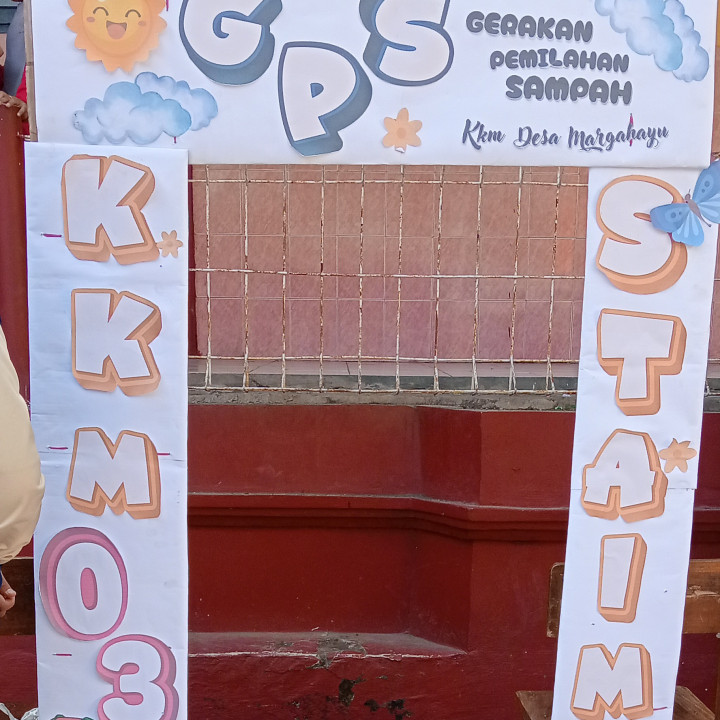 GPS
GERAKAN
PEMILAHAN
SAMPAH
Kkm Desa Margahayu
KKM03
STAIM